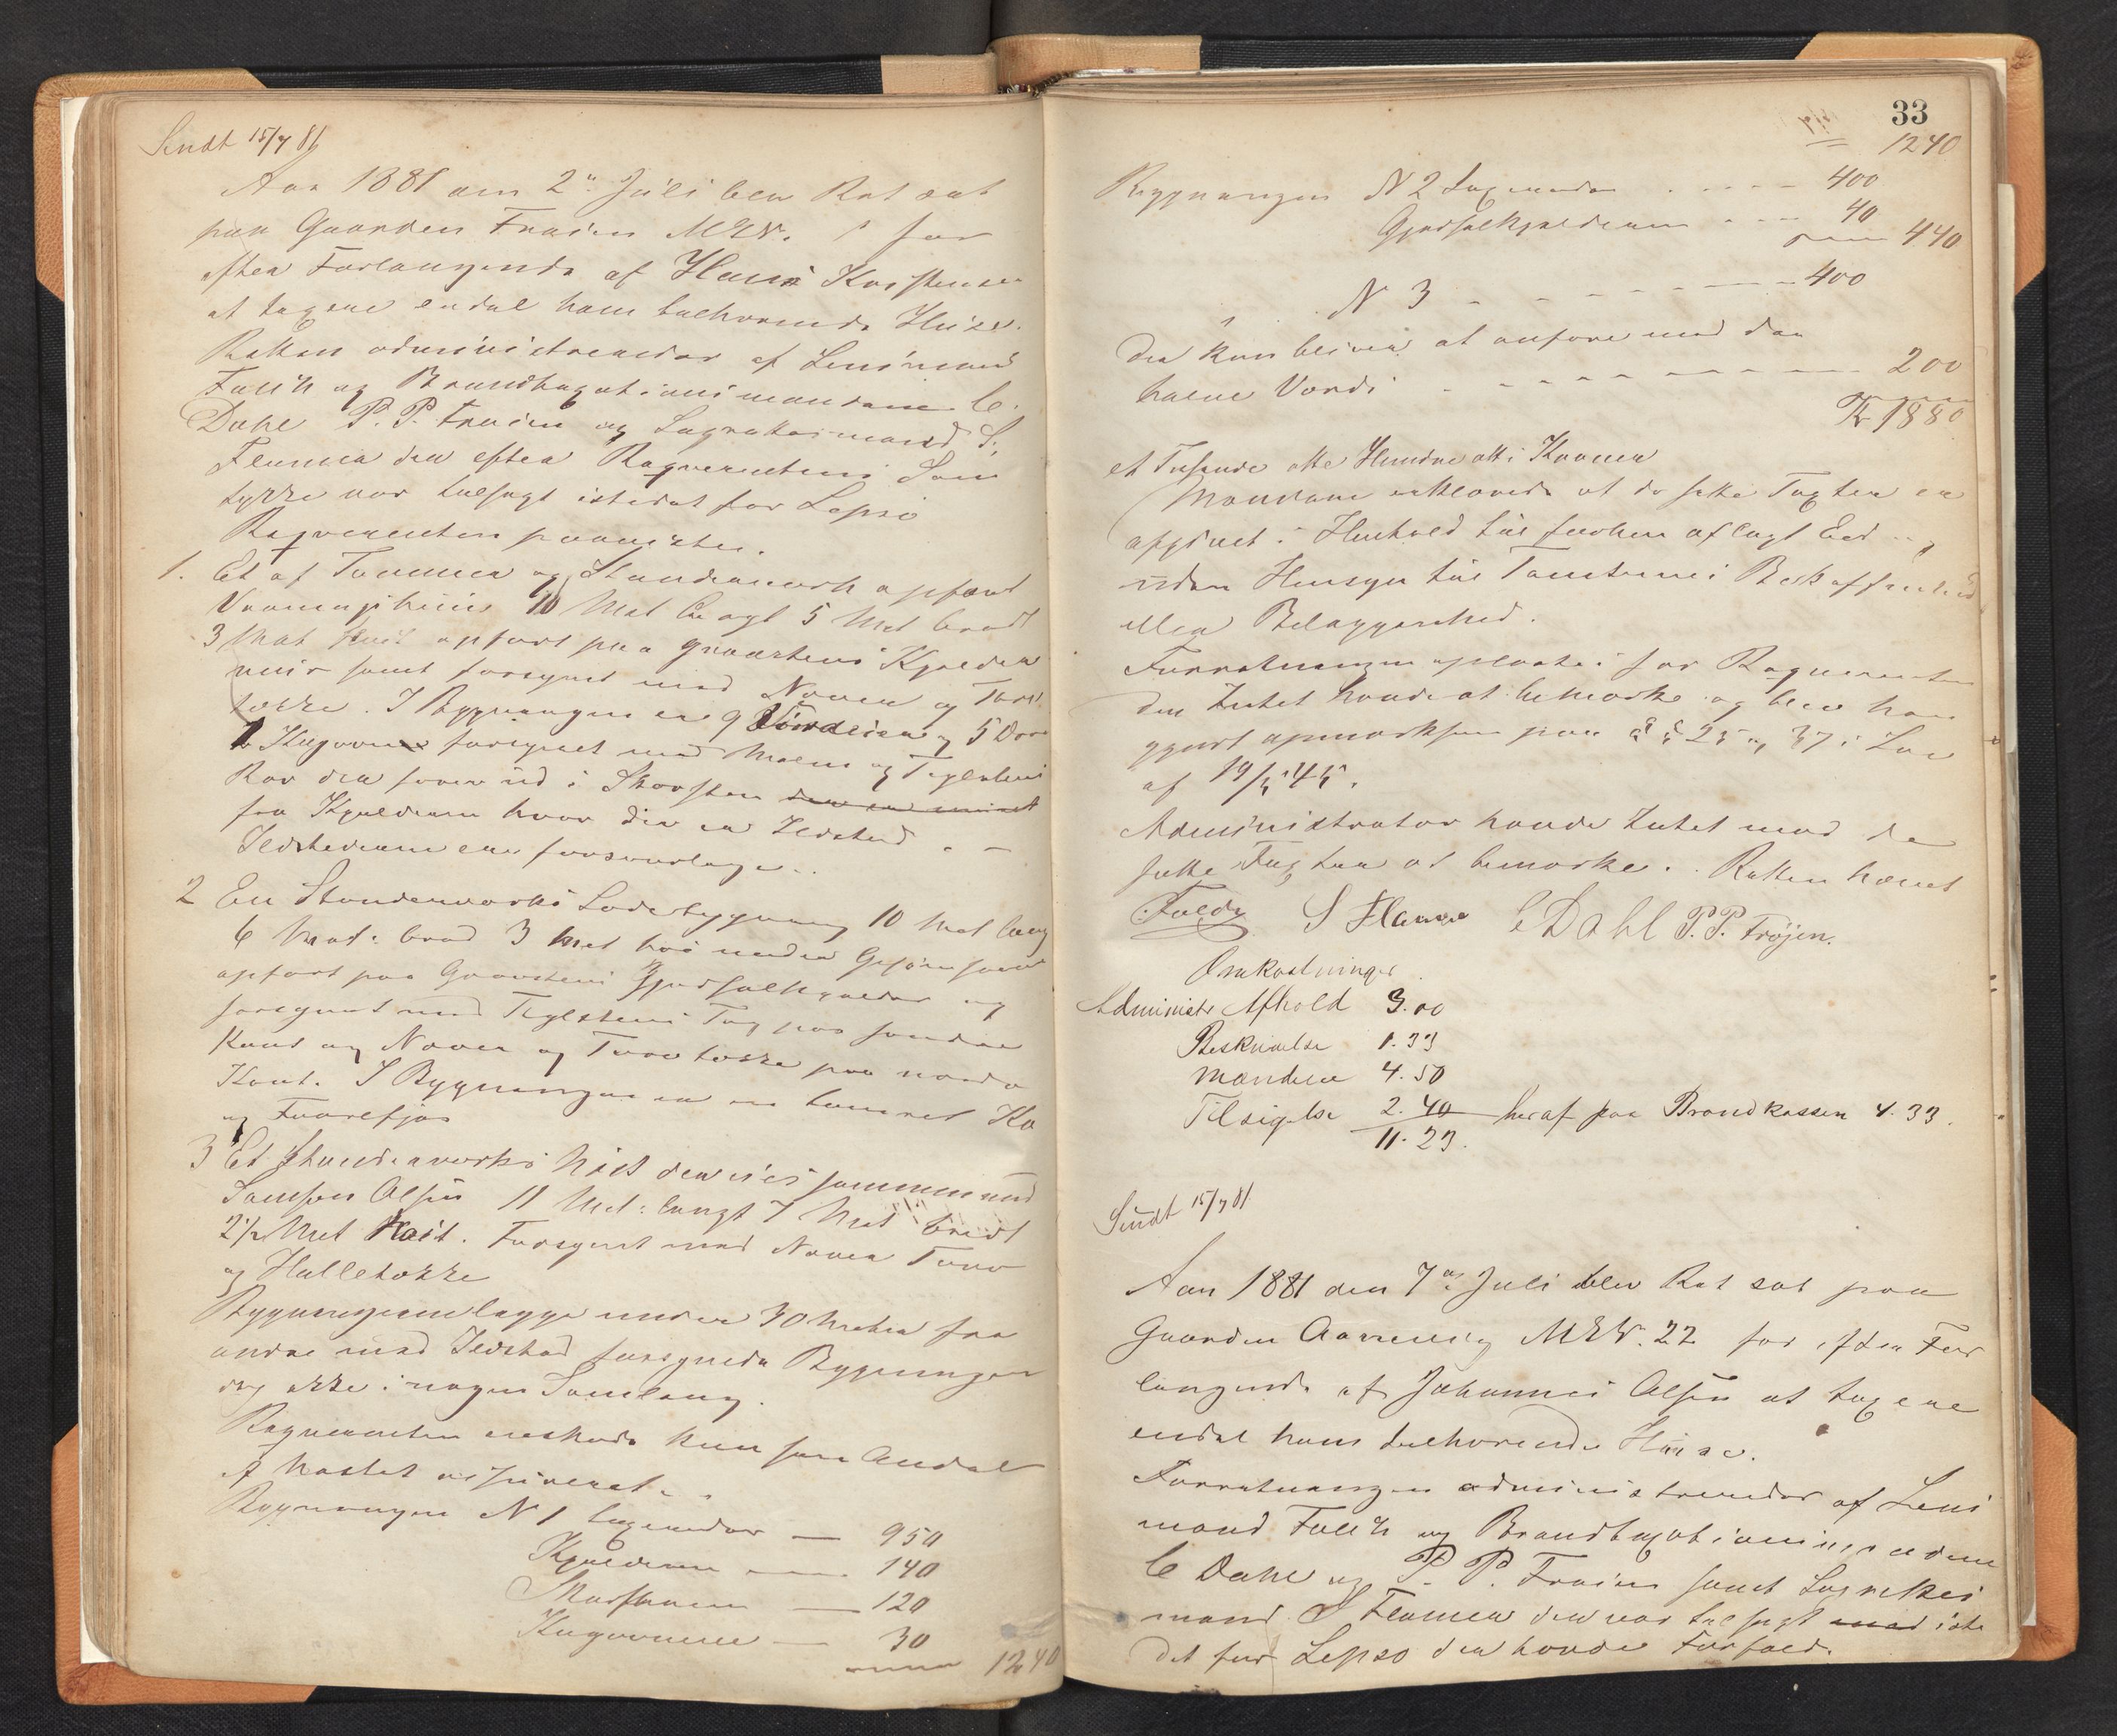 Sendt 15/7 81
Aar 1881 den 2den Juli blev Ret sat
paa Gaarden Frøien MNr. 1 for
efter Forlangende af Hans Karstensen
at taxere endel ham tilhørende Huse.
Retten administreredes af Lensmand
Falch og Brandtaxationsmændene C.
Dahl P. P. Frøien og Lagrettesmand S.
Flamme der efter Reqvirentens Sam
tykke var tilsagt istedet for Lepsø
Reqvirenten paaviste.
1. Et af Tømmer og Stenderværk opført
Vaaningshuus 10 Met langt 5 Met bredt
3 Met høit opført paa graasteins Kjælder
muir samt forsynet med Næver og Torv
tække. I Bygningen er 9 Vinduer 5 Døre
1 Kogeovn forsynet med Malm og Teglsteins
Rør der fører ud i Skorsten der er muret
fra Kjelderen hvor der er Ildsted
Ildstederne ere forsvarlige.
2 En Stenderværks Ladebygning 10 Met lang
6 Met: bred 3 Met høi under Gesims
opført paa Graasteins Gjødselkjælder og
forsynet med Teglsteins Tag paa søndre
Kant og Næver og Torvtække paa nordre
Kant. I Bygningen er en tømret Ko
og Faarefjøs
3 Et Stenderværks Nøst der eies sammen med
Samson Olsen 11 Met: langt 7 Met bredt
2½ Met Høit. Forsynet med Næver Torv
og Helletække
Bygningerne ligge under 30 Meter fra
andre med Ildsted forsynede Bygninger
dog ikke i nogen Samlang.
Reqvirenten ønskede kun sin Andel
af Nøstet assureret.
Bygningen N 1 taxeredes — 950
Kjelderen — 140
Skorstenen — 120
Kogeovnene — 30
1240
33
1240
Bygningen N 2 taxeredes - - - - 400
Gjødselkjælderen - - - 40
440
N 3 - - - - - - - 400
der kun bliver at anføre med den
halve Værdi - - - - - - - - 200
Kr 1880
et Tusende otte Hundre otti Kroner
Mændene erklærede at de satte Taxter er
afgivet i Henhold til forhen aflagt Eed og
uden Hensyn til Tomternes Beskaffenhed
eller Beliggenhed.
Forretningen oplæstes for Reqvirenten
der Intet havde at bemærke og blev han
gjort opmærksom paa §§ 25 og 37 i Lov
af 19/8 45.
Administrator havde Intet mod de
satte Taxter at bemærke. Retten hævet
Falch S Flamme C Dahl P. P. Frøjen.
Omkostninger
Administr Afhold 3.00
Beskrivelse 1.33
Mændene 4.50
Tilsigelse 2.40 heraf paa Brandkassen 4.33.
11.23.
Sendt 15/7 81
Aar 1881 den 7de Juli blev Ret sat paa
Gaarden Aarreberg MNr. 22 for efter For
langende af Johannes Olsen at taxere
endel ham tilhørende Huse.
Forretningen administreredes af Lens
mand Falch og Brandtaxationsmændene
C Dahl og P. P. Frøien samt Lagrettes
mand S Flamme der var tilsagt iste
det for Lepsø der havde Forfald.